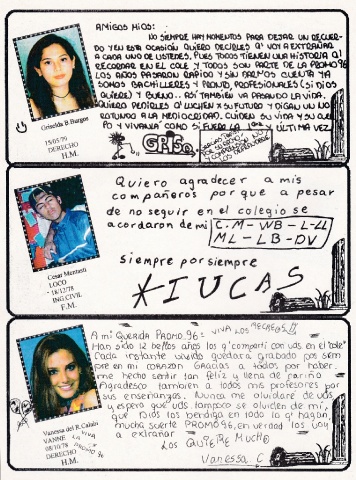 AMIGOS MIOS:
NO SIEMPRE HAY MOMENTOS PARA DEJAR UN RECUER-
DO Y EN ESTA OCASIÓN QUIERO DECIRLES Q' VOY A EXTRAÑAR
A CADA UNO DE USTEDES, PUES TODOS TIENEN UNA HISTORIA Q'
RECORDAR EN EL COLE Y TODOS SON PARTE DE LA PROMO 96
LOS AÑOS PASARON RAPIDO Y SIN DARNOS CUENTA YA
SOMOS BACHILLERES Y PRONTO, PROFESIONALES (SI DIOS
QUIERE) Y BUENO.. ASÍ TAMBIÉN VA PASANDO LA VIDA.
QUIERO PEDIRLES Q' LUCHEN X SU FUTURO Y DIGAN UN NO
ROTUNDO A LA MEDIOCRIDAD. CUIDEN SU VIDA Y SU
PO Y VIVANLA COMO SI FUERA LA 1era Y ÚLTIMA VEZ
Griselda B. Burgos
15/05/79
DERECHO
H.M.
GRISO
Quiero agradecer a mis
compañeros por que a pesar
de no seguir en el colegio se
acordaron de mi
C.M-WB-L-LL
ML-LB-DV
siempre por siempre
KIUCAS
Cesar Menbutti
LOCO
18/12/78
ING.CIVIL
F.M.
A mi QUERIDA PROMO 96: VIVA LOS RECREOS!!
Han sido 12 bellos años los q' compartí con uds en el "cole"
Cada instante vivido quedará grabado por siem
pre en mi CORAZON. GRACIAS a todos por haber
me hecho sentir tan feliz y llena de cariño
Agradesco tambien a todos mis profesores por
sus enseñanzas. Nunca me olvidaré de uds
y espero que uds tampoco se olviden de mi,
que DIOS los bendiga en todo lo q' hagan
mucha suerte PROMO 96, en verdad los voy
a extrañar
LOS QUIERE MUCHO
Vanessa C
Vanessa del R. Cabalo
VANNE
08/10/78
DERECHO
H.M.
LA VIVA
PROMO 96